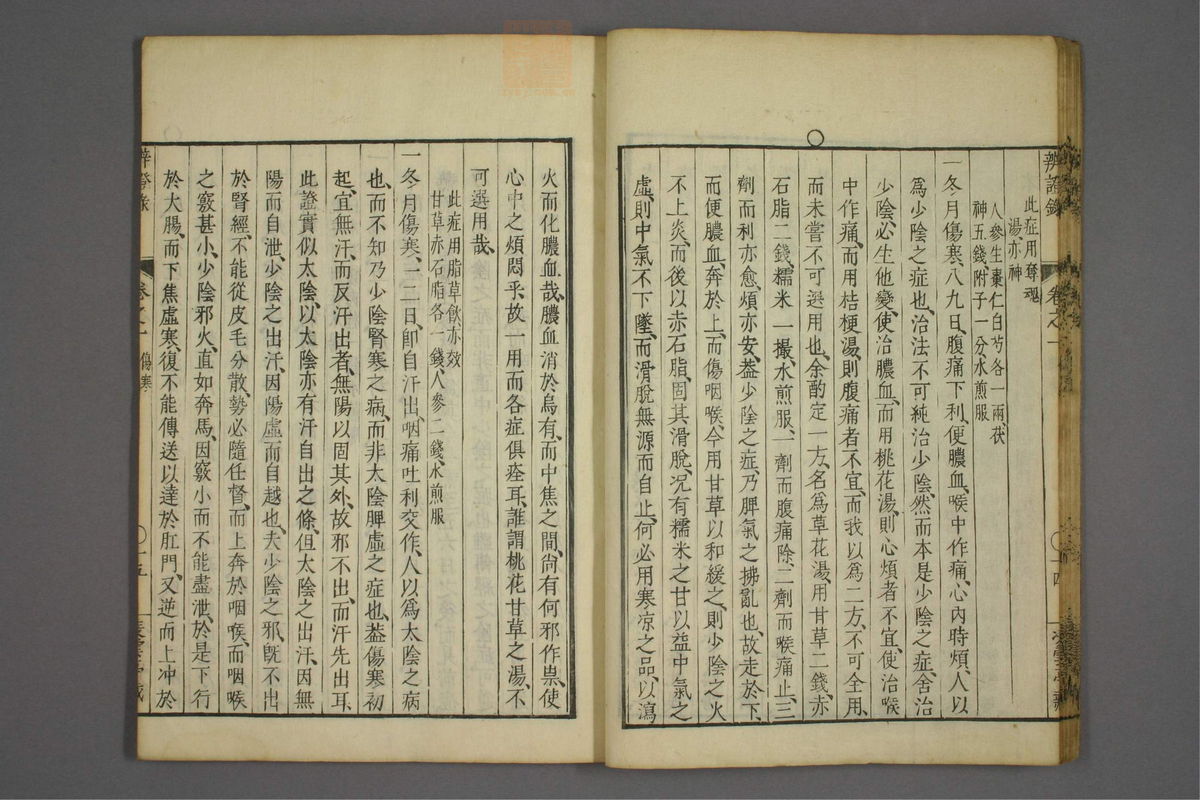 辨證錄
卷之一
此症用奪魂
湯亦神
人參生棗仁白芍各一兩茯
神五錢附子一分水煎服
一冬月傷寒八九日腹痛下利便膿血喉中作痛心內時煩人以
爲少陰之症也治法不可純治少陰然而本是少陰之症舍治
少陰必生他變使治膿血而用桃花湯則心煩者不宜使治喉
中作痛而用桔梗湯則腹痛者不宜而我以爲二方不可全用
而未嘗不可選用也余酌定一方名爲草花湯用甘草二錢赤
石脂二錢糯米一撮水煎服一劑而腹痛除二劑而喉痛止三
劑而利亦愈煩亦安葢少陰之症乃脾氣之拂亂也故走於下
而便膿血奔於上而傷咽喉今用甘草以和緩之則少陰之火
不上炎而後以赤石脂固其滑脫况有糯米之甘以益中氣之
虛則中氣不下墜而滑脫無源而自止何必用寒凉之品以瀉
火而化膿血哉膿血消於烏有而中焦之間尙有何邪作祟使
心中之煩悶乎故一用而各症俱痊耳誰謂桃花甘草之湯不
可選用哉
此症用脂草飲亦效
甘草赤石脂各一錢人參二錢水煎服
一冬月傷寒一二日卽自汗出咽痛吐利交作人以爲太陰之病
也而不知乃少陰腎寒之病而非太陰脾虛之症也葢傷寒初
起宜無汗而反汗出者無陽以固其外故邪不出而汗先出耳
此證實似太陰以太陰亦有汗自出之條但太陰之出汗因無
陽而自泄少陰之出汗因陽虛而自越也夫少陰之邪旣不出
於腎經不能從皮毛分散勢必隨任督而上奔於咽喉而咽喉
之竅甚小少陰邪火直如奔馬因竅小而不能盡泄於是下行
於大腸而下焦虛寒復不能傳送以達於肛門又逆而上冲於
卷之一 傷寒
十五